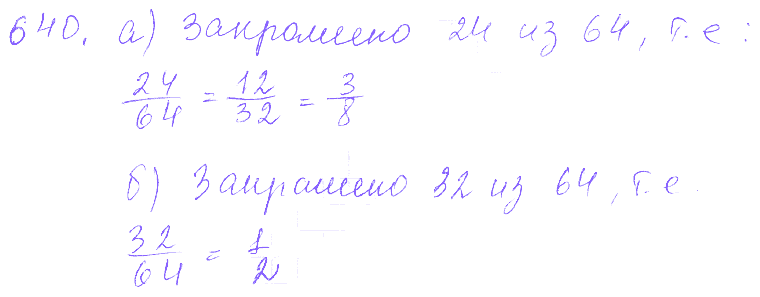 640. а) Закрашено 24 из 64, т.е:
24/64 = 12/32 = 3/8
б) Закрашено 32 из 64, т.е.
32/64 = 1/2